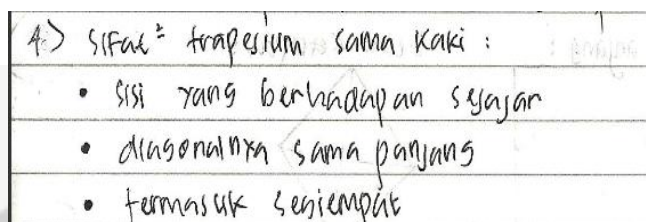 4.) Sifat² trapesium sama kaki :
• sisi yang berhadapan sejajar
• diagonalnya sama panjang
• termasuk segiempat